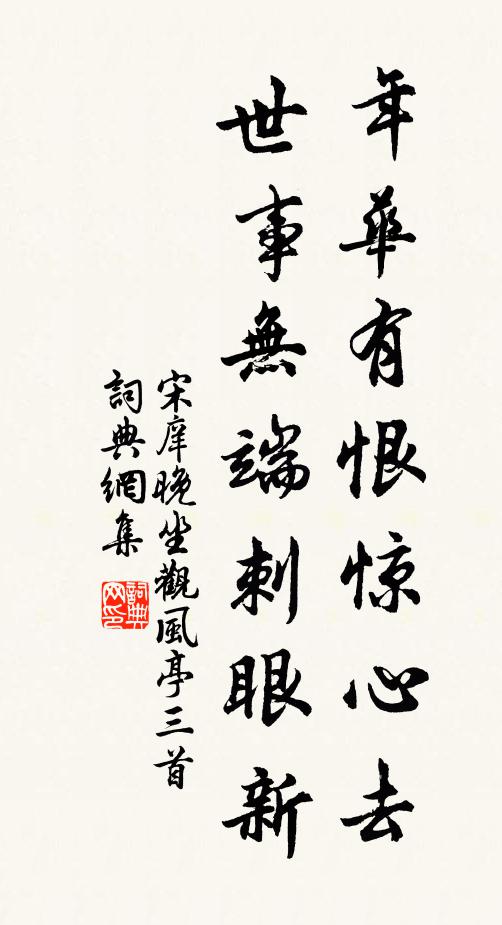 年華有恨惊心去
世事無端刺眼新
宋庠晚坐觀風亭三首
詞典網集
詞典網印